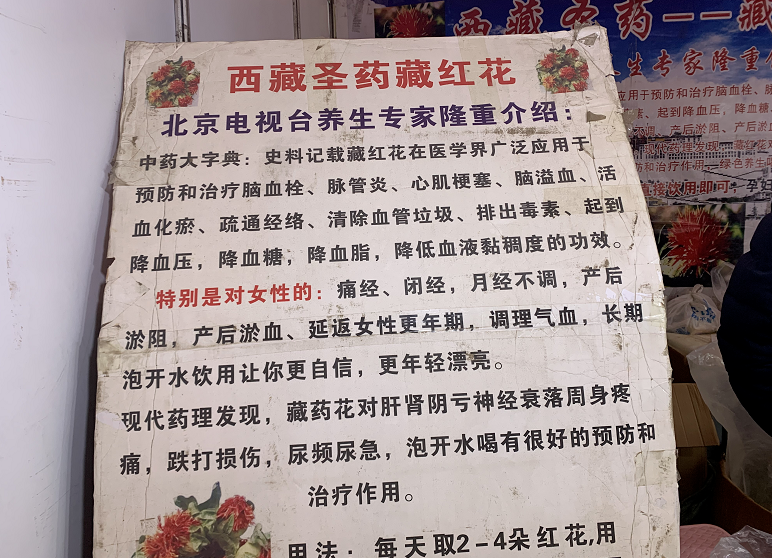 西藏圣药藏红花
北京电视台养生专家隆重介绍：
中药大字典：史料记载藏红花在医学界广泛应用于
预防和治疗脑血栓、脉管炎、心肌梗塞、脑溢血、活
血化瘀、疏通经络、清除血管垃圾、排出毒素、起到
降血压，降血糖，降血脂，降低血液黏稠度的功效。
特别是对女性的：痛经、闭经，月经不调，产后
淤阻，产后淤血、延返女性更年期，调理气血，长期
泡开水饮用让你更自信，更年轻漂亮。
现代药理发现，藏药花对肝肾阴亏神经衰落周身疼
痛，跌打损伤，尿频尿急，泡开水喝有很好的预防和
治疗作用。
用法：每天取2-4朵红花,用
西藏圣药——藏
生专家隆重
应用于预防和治疗脑血栓、脉
起到降血压，降血糖
不调，产后淤阻、产后淤
现代药理发现
防和治疗作用
直接饮用即可，孕妇